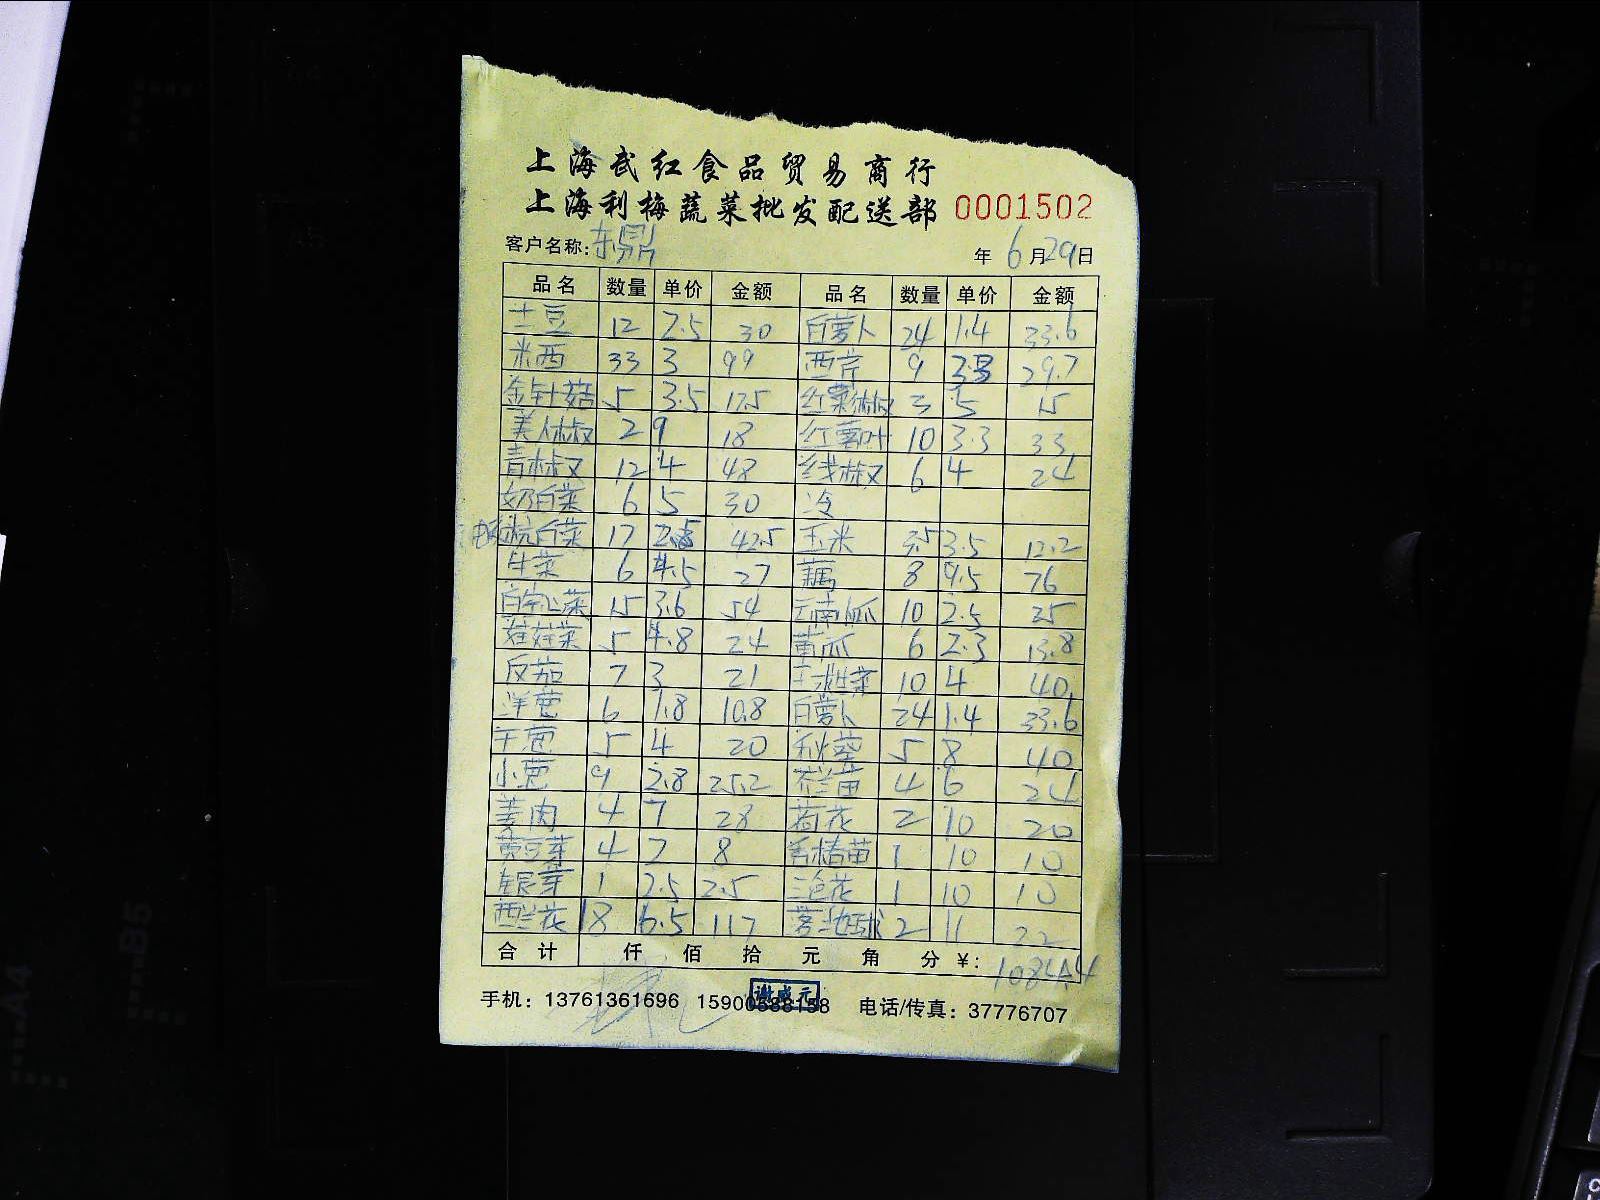 上海武红食品贸易商行
上海利梅蔬菜批发配送部 0001502
客户名称: 东鼎 年 6月29日
品名 数量 单价 金额 品名 数量 单价 金额
土豆 12 2.5 30 白萝卜 24 1.4 33.6
米西 33 3 99 西芹 9 3.3 29.7
金针菇 5 3.5 17.5 红菜椒 3 5 15
美人椒 2 9 18 红薯叶 10 3.3 33
青椒 12 4 48 线椒 6 4 24
奶白菜 6 5 30 冷
杭白菜 17 2.5 42.5 玉米 3.5 3.5 12.2
生菜 6 4.5 27 藕 8 9.5 76
空心菜 15 3.6 54 南瓜 10 2.5 25
娃娃菜 5 4.8 24 黄瓜 6 2.3 13.8
反茄 7 3 21 菜 10 4 40
洋葱 6 1.8 10.8 白萝卜 24 1.4 33.6
干葱 5 4 20 秋葵 5 8 40
小葱 9 2.8 25.2 芥兰苗 4 6 24
姜肉 4 7 28 荷花 2 10 20
黄豆芽 4 2 8 香椿苗 1 10 10
银芽 1 2.5 2.5 三色花 1 10 10
西兰花 18 6.5 117 2 11 22
合计 仟 佰 拾 元 角 分 ¥: 1084.4
谢盛元
手机: 13761361696 15900588158 电话/传真: 37776707